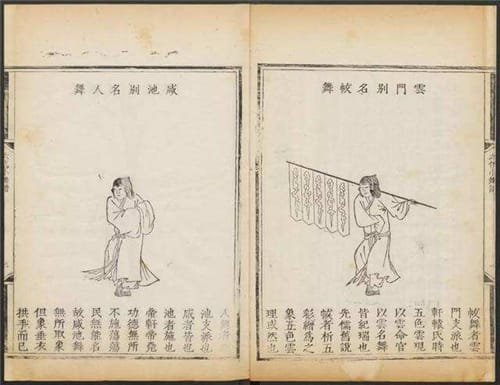 雲門別名帗舞
帗舞者雲
門支派也
軒轅氏時
五色雲現
以雲命官
以雲名舞
皆紀瑞也
先儒舊說
帗者析五
彩繒為之
象五色雲
理或然也
咸池別名人舞
人舞者咸
池支派也
咸者皆也
池者施也
帝軒帝堯
功德無所
不施蕩蕩
民無能名
故咸池舞
無所取象
但象垂衣
拱手而已